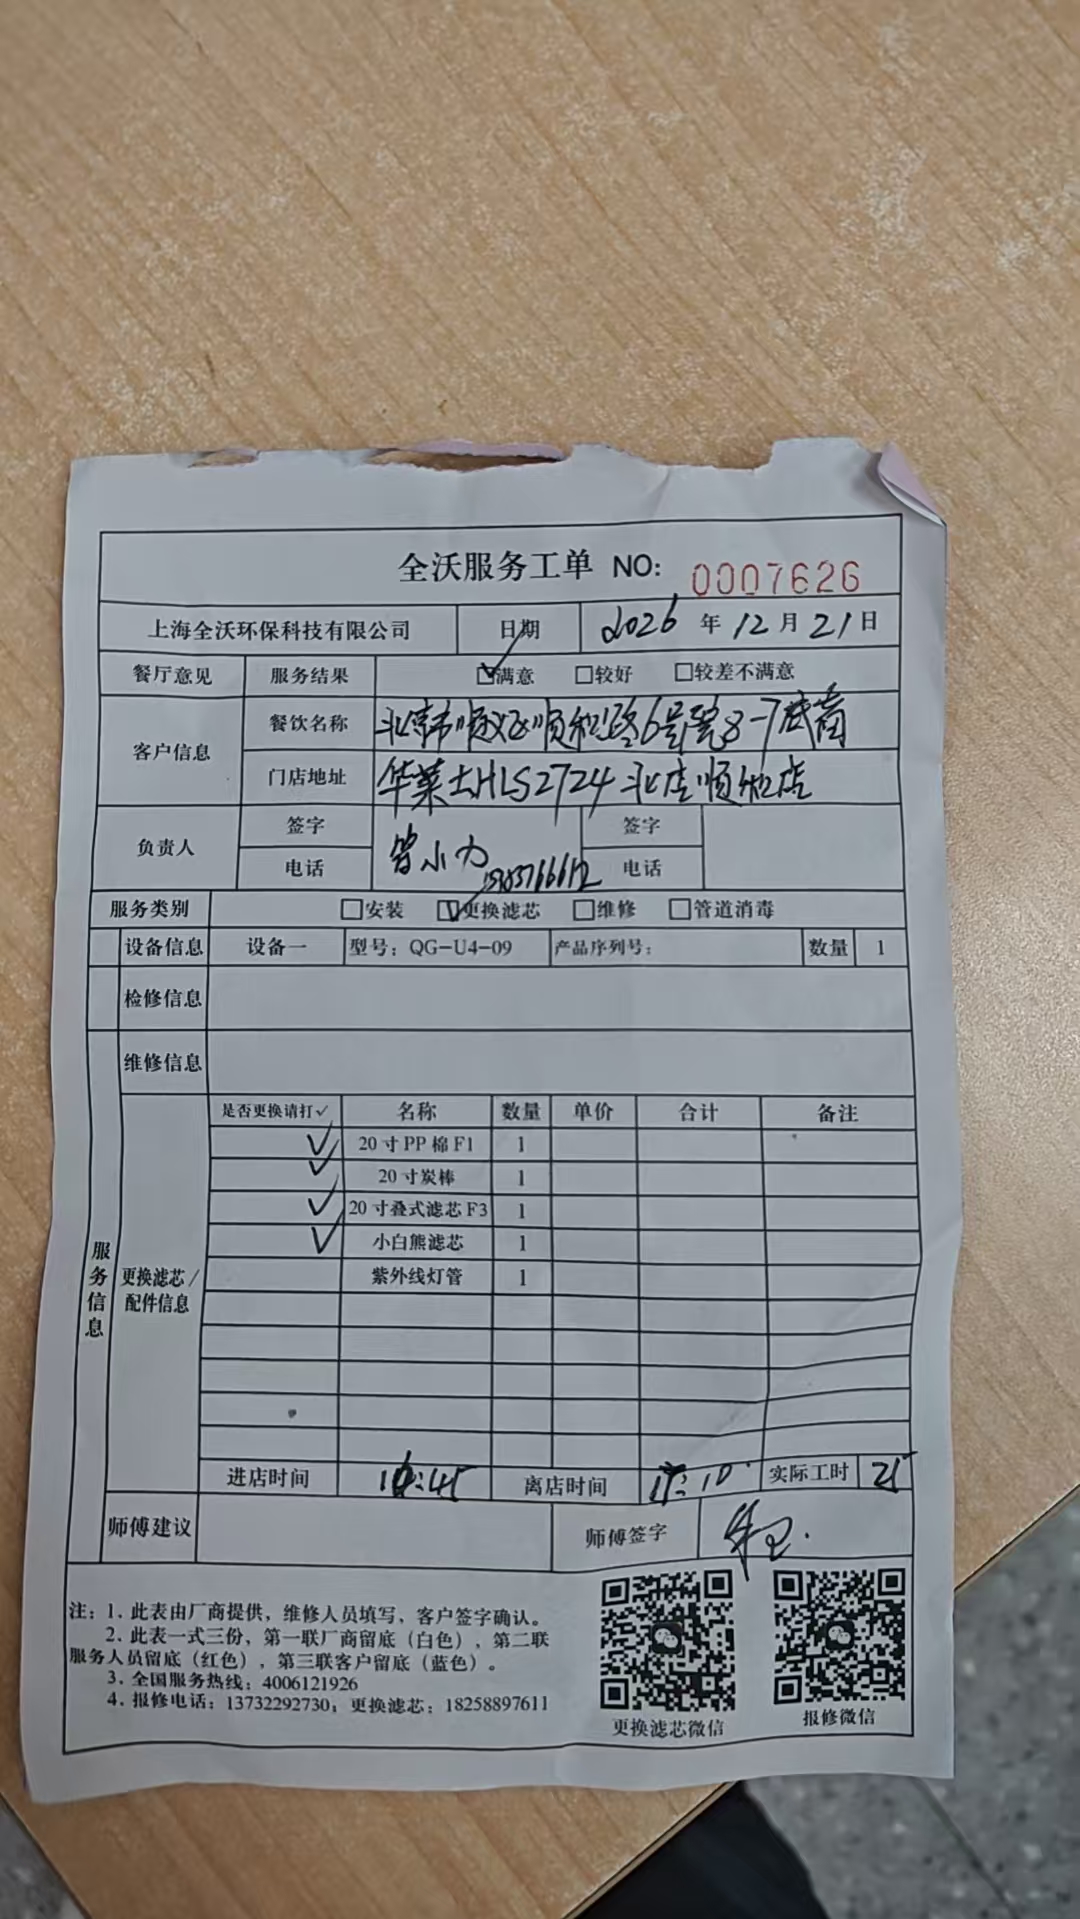 全沃服务工单 NO: 0007626
上海全沃环保科技有限公司 日期 2026年12月21日
餐厅意见 服务结果 ☑满意 □较好 □较差不满意
客户信息 餐饮名称 北京市顺义区顺和路6号院8-7底商
门店地址 华莱士HLS2724北店顺和店
负责人 签字 曾小力 签字
电话 电话
服务类别 □安装 ☑更换滤芯 □维修 □管道消毒
设备信息 设备一 型号: QG-U4-09 产品序列号: 数量 1
检修信息
维修信息
服务信息
更换滤芯/配件信息
是否更换请打✓ 名称 数量 单价 合计 备注
✓ 20寸PP棉F1 1
✓ 20寸炭棒 1
✓ 20寸叠式滤芯F3 1
✓ 小白熊滤芯 1
紫外线灯管 1
进店时间 16:45 离店时间 17:10 实际工时 25
师傅建议 师傅签字
注: 1. 此表由厂商提供, 维修人员填写、客户签字确认。
2. 此表一式三份, 第一联厂商留底(白色), 第二联
服务人员留底(红色), 第三联客户留底(蓝色)。
3. 全国服务热线: 4006121926
4. 报修电话: 13732292730; 更换滤芯: 18258897611
更换滤芯微信 报修微信